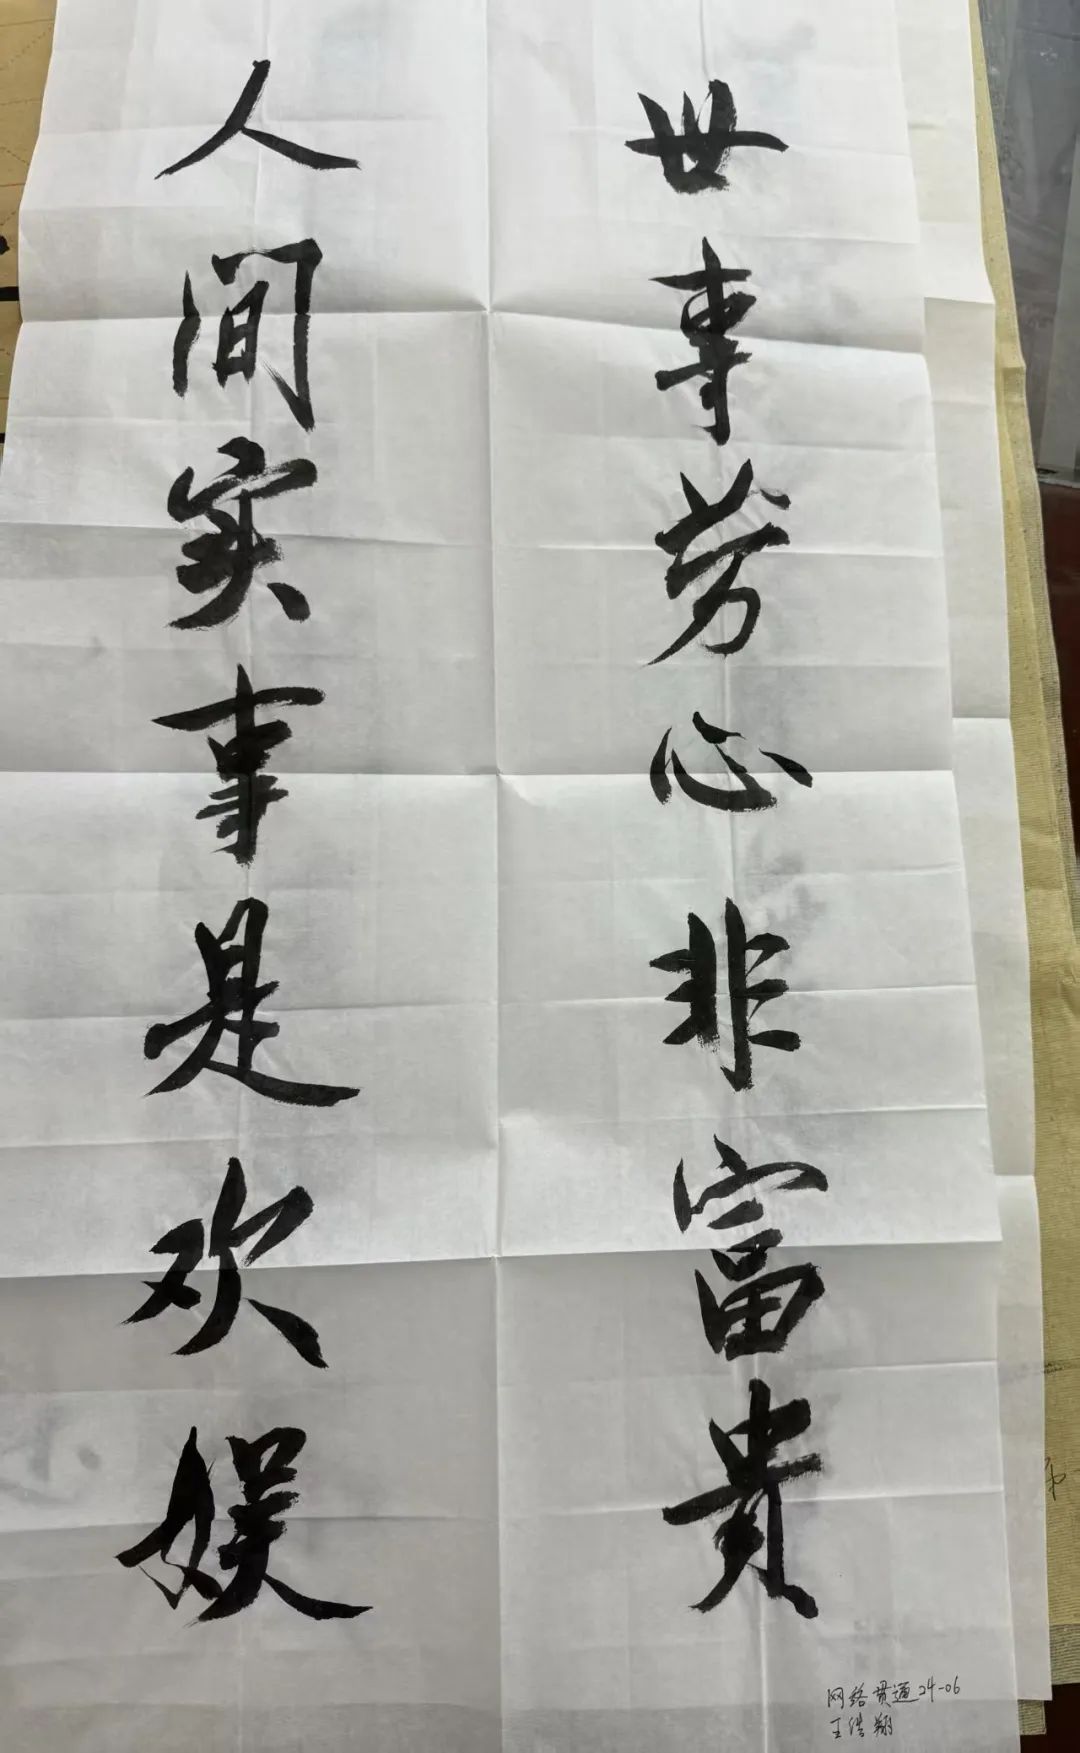 世事劳心非富贵
人间实事是欢娱
网络贯通24-06
王浩翔